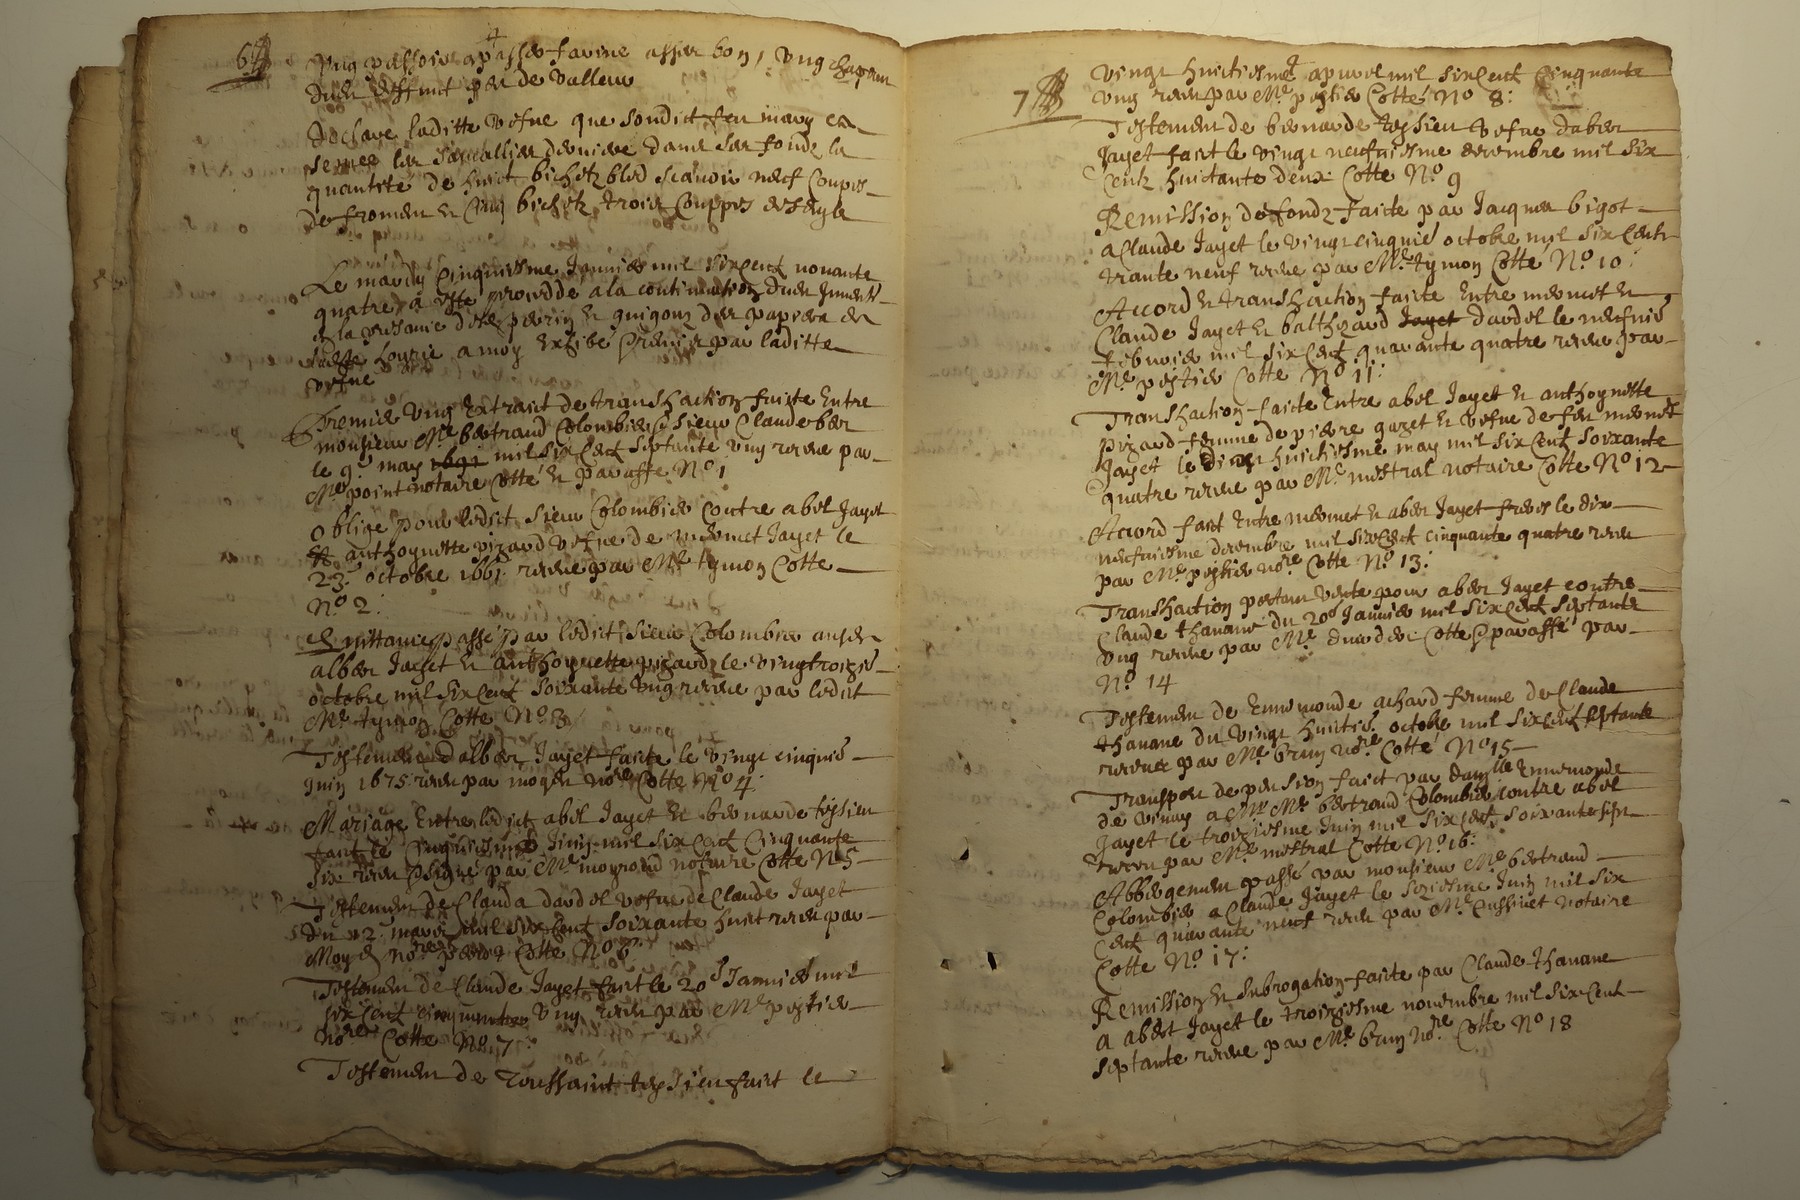 6
Ung passoir a passer farine asses bon, ung chapeau
dudit deffunct peu de valleur
Declare laditte vefve que sondict feu mary
la saison derniere dans ses fondz la
quantité de huict bichetz bled scavoir neuf Couppes
de froment et Cinq bichetz trois Couppes de seigle
Le mardy Cinquiesme Janvier mil sixcent nonante
quatre a esté procedde a la continuation dudit Inventʳᵉ
en la presance desd. perrin et guigoux des papiers de
laditte hoyrie a moy exhibé Premier par laditte
vefve
Premier ung Extraict de transhaction faicte Entre
monsieur Mᵉ bertrand Colombier & Sieur Claude
le 9ᵉ may mil sixcent septante ung receue par
Mᵉ point notaire Cotté et paraffé N° 1
Oblige pour ledict sieur Colombier Contre abel Jayet
et anthoynette pizard vefve de mermet Jayet le
23ᵉ octobre 1661 receue par Mᵉ tymon Cotte
N° 2:
Quittance passé par ledict sieur Colombier ausd.
alber Jayet et anthoynette pizard le vingtroizie
octobre mil sixcent soixante ung receue par ledict
Mᵉ tymon Cotte N° 3
Testement dalber Jayet faict le vingt cinquie
Juin 1675 receu par moyen noʳᵉ Cotte N° 4:
Mariage Entre ledict abel Jayet et bernarde teysieu
faict le Cinquiesme Juin mil sixcent Cinquante
six receu & signé par Mᵉ moyroud notaire Cotte N° 5
Testement de Clauda dardel vefve de Claude Jayet
du 12 mars mil sixcent soixante huict receu par
Moyen noʳᵉ Cotte N° 6:
Testement de Claude Jayet faict le 20ᵉ Janvier mil
sixcent cinquante ung receu par Mᵉ pestier
noʳᵉ Cotte N° 7:
Testement de Toussaint teysieu faict le
7
vingt huictiesme apvril mil sixcent Cinquante
ung receu par Mᵉ pestier Cotté N° 8:
Testement de bernarde teysieu vefve daber
Jayet faict le vingt neufviesme decembre mil six
Centz huictante deux Cotte N° 9
Remission de fondz faicte par Jacques bigot
a Claude Jayet le vingt cinquie octobre mil six Cents
trante neuf receue par Mᵉ tymon Cotte N° 10:
Accord et transhaction faicte Entre mermet et
Claude Jayet et balthezard Jayet dardel le neufvie
febvrier mil sixcent quarante quatre receue par
Mᵉ pestier Cotte N° 11:
Transhaction faicte Entre abel Jayet et anthoynette
pizard femme de pierre gazet et vefve de feu mermet
Jayet le dix huictiesme may mil sixcent soixante
quatre receue par Mᵉ mistral notaire Cotte N° 12
Accord faict Entre mermet et aber Jayet freres le dix
neufviesme decembre mil sixcent cinquante quatre receu
par Mᵉ pestier noʳᵉ Cotte N° 13:
Transhaction portant vente pour aber Jayet contre
Claude thanane du 20ᵉ Janvier mil sixcent septante
ung receue par Mᵉ Cotte & paraffé par
N° 14
Testement de Ennemonde achard femme de Claude
thanane du vingt huictie octobre mil sixcent septante
receue par Mᵉ brun noʳᵉ Cotté N° 15
Transport de pension faict par damˡˡᵉ Ennemonde
de vinay a Mᵉ bertrand Colombier contre abel
Jayet le troiziesme Juin mil sixcent soixante sept
receu par Mᵉ mistral Cotte N° 16:
Abbergement passé par monsieur Mᵉ bertrand
Colombier a Claude Jayet le seziesme Juin mil six
cent quarante neuf receu par Mᵉ Cussinet notaire
Cotte N° 17:
Remission et subrogation faicte par Claude thanane
a aber Jayet le troiziesme novembre mil sixcent
septante receue par Mᵉ brun noʳᵉ Cotte N° 18